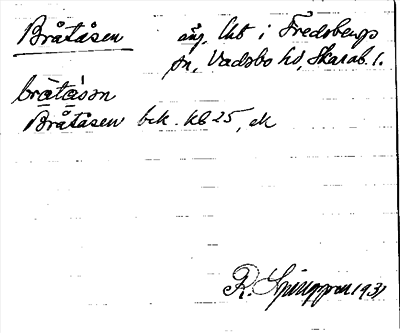 Bråtåsen äng. Hbt i Fredsbergs
sn, Vadsbo hd, Skarab. l.
bråtåsən
Bråtåsen bek. kb 25, ek
R. 1931